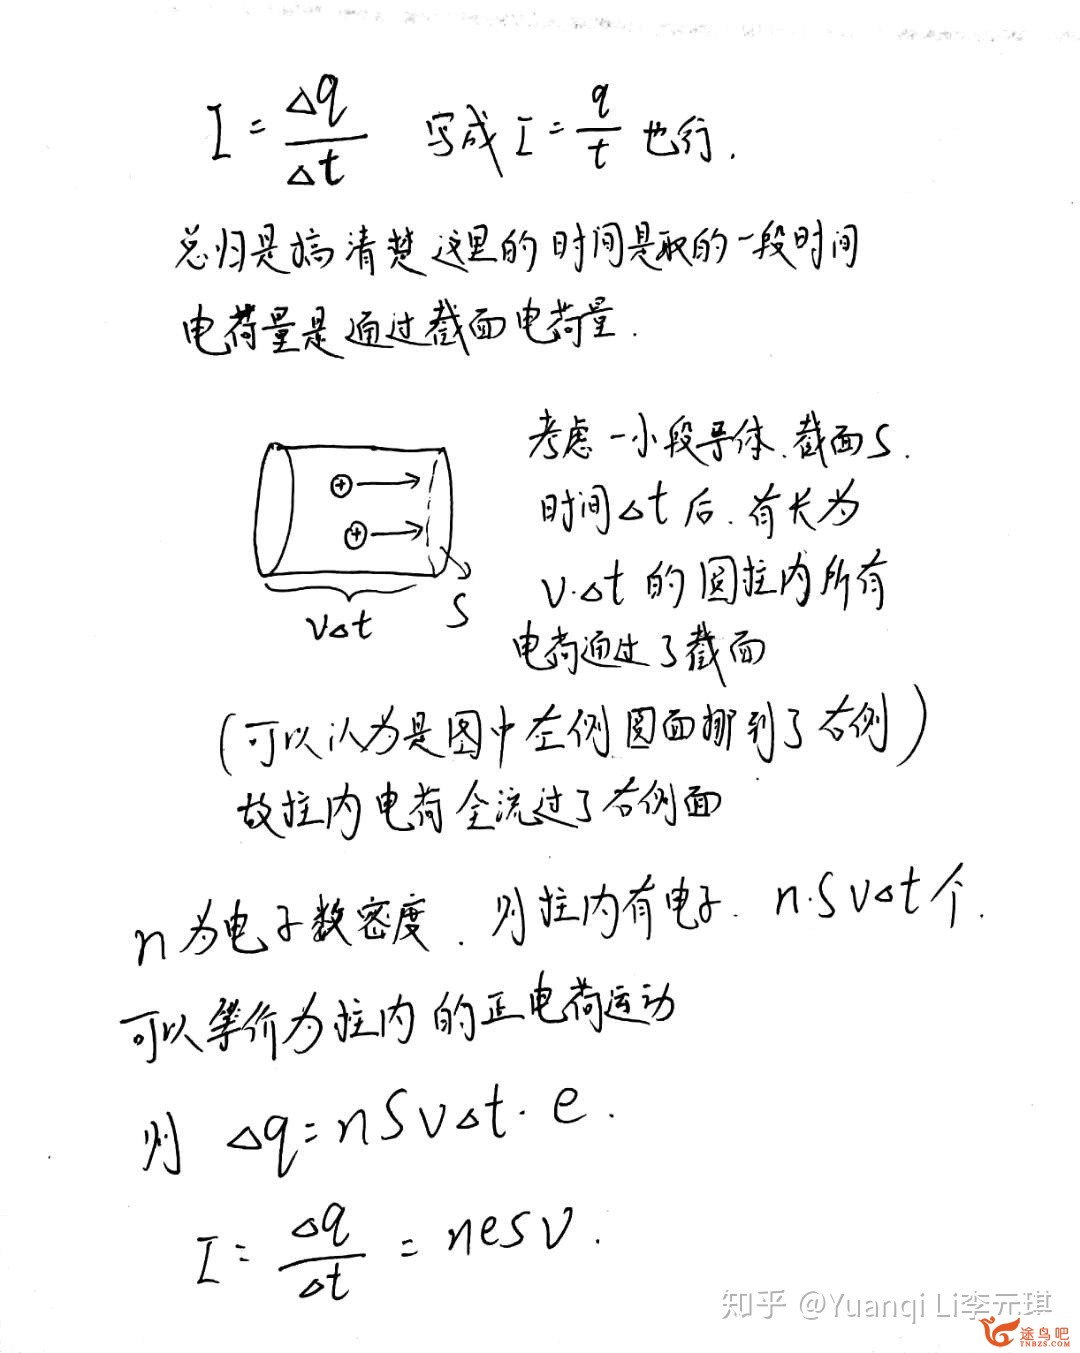 I = Δq/Δt 写成 I = q/t 也行.
总归是搞清楚这里的时间是取的一段时间
电荷量是通过截面电荷量.
考虑一小段导体.截面S.
时间Δt后.有长为
V·Δt的圆柱内所有
电荷通过了截面
VΔt
S
(可以认为是图中左侧圆面挪到了右侧)
故柱内电荷全流过了右侧面
n为电子数密度. 则柱内有电子. n·SVΔt个.
可以等价为柱内的正电荷运动
则 Δq=nSVΔt·e.
I = Δq/Δt = nesv.
知乎 @Yuanqi Li李元琪
途鸟吧
TNBZS.COM